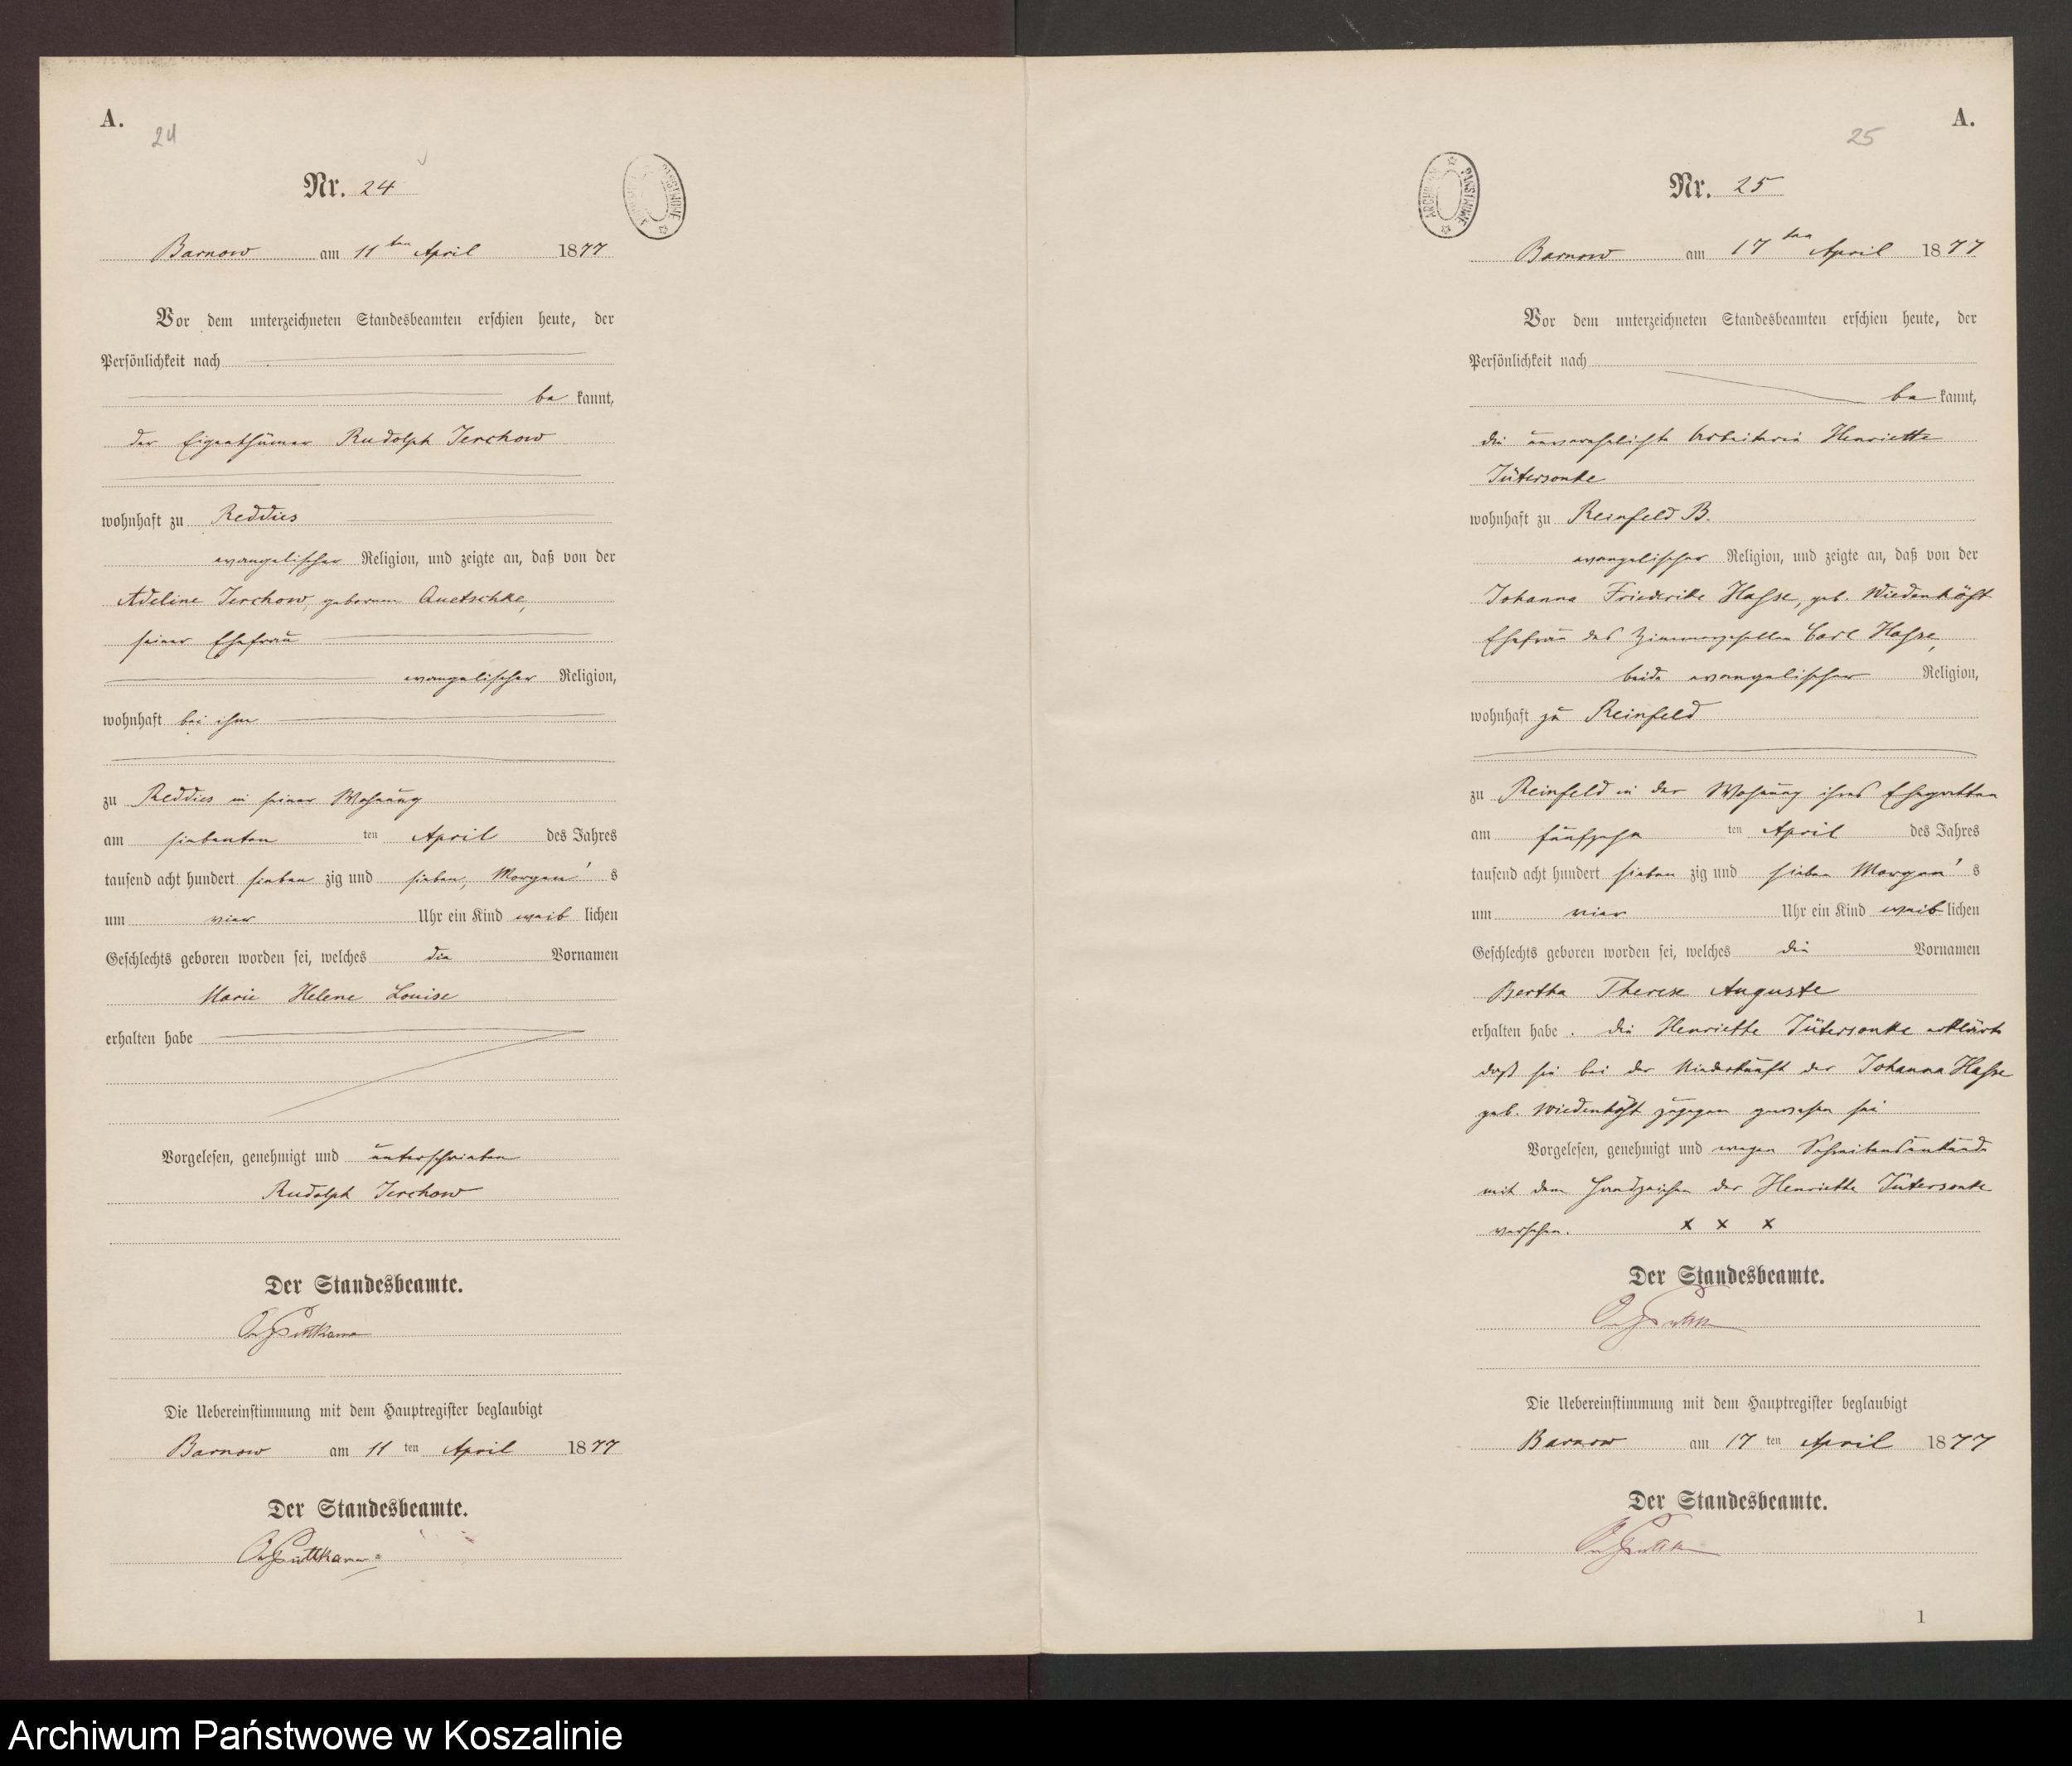 A.
24
Nr. 24
Barnow am 11ten April 1877
Vor dem unterzeichneten Standesbeamten erschien heute, der
Persönlichkeit nach
be kannt,
der Eigenthümer Rudolph Jerchow
wohnhaft zu Reddies
evangelischer Religion, und zeigte an, daß von der
Adeline Jerchow, geborene Quetschke,
seiner Ehefrau
evangelischer Religion,
wohnhaft bei ihm
zu Reddies in seiner Wohnung
am siebenten ten April des Jahres
tausend acht hundert sieben zig und sieben, Morgen's
um vier Uhr ein Kind weib lichen
Geschlechts geboren worden sei, welches die Vornamen
Marie Helene Louise
erhalten habe
Vorgelesen, genehmigt und unterschrieben
Rudolph Jerchow
Der Standesbeamte.
Die Uebereinstimmung mit dem Hauptregister beglaubigt
Barnow am 11 ten April 1877
Der Standesbeamte.
A.
25
Nr. 25
ARCHIWUM PAŃSTWOWE
Barnow am 17ten April 1877
Vor dem unterzeichneten Standesbeamten erschien heute, der
Persönlichkeit nach
be kannt,
die unverehelichte Arbeiterin Henriette
Jütersonke
wohnhaft zu Reinfeld B.
evangelischer Religion, und zeigte an, daß von der
Johanna Friederike Hasse, geb. Wiedenhöft
Ehefrau des Zimmergesellen Carl Hasse,
beide evangelischer Religion,
wohnhaft zu Reinfeld
zu Reinfeld in der Wohnung ihres Ehegatten
am fünfzehn ten April des Jahres
tausend acht hundert sieben zig und sieben Morgen's
um vier Uhr ein Kind weib lichen
Geschlechts geboren worden sei, welches die Vornamen
Bertha Therese Auguste
erhalten habe. die Henriette Jütersonke erklärte
daß sie bei der Niederkunft der Johanna Hasse
geb. Wiedenhöft zugegen gewesen sei
Vorgelesen, genehmigt und wegen
mit dem Handzeichen der Henriette Jütersonke
versehen. x x x
Der Standesbeamte.
Die Uebereinstimmung mit dem Hauptregister beglaubigt
Barnow am 17 ten April 1877
Der Standesbeamte.
1
Archiwum Państwowe w Koszalinie